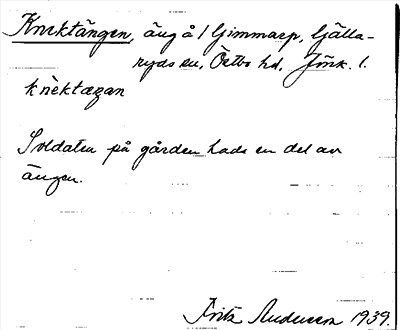 Knektängen, äng å 1 Gimmarp, Gälla-
ryds sn, Östbo hd, Jönk. l.
knèktæŋan
Soldaten på gården hade en del av
ängen.
Fritz Andersson 1939.